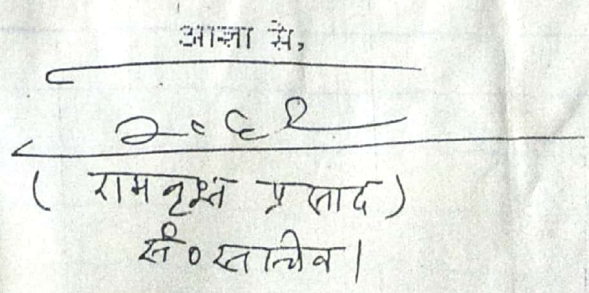 आज्ञा से,
( रामवृक्ष प्रसाद )
सं० सचिव।